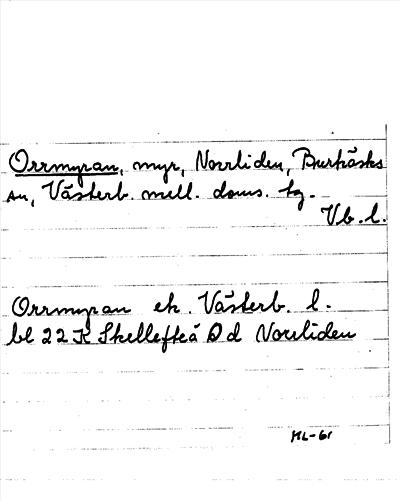 Orrmyran, myr, Norrliden, Burträsks
sn, Västerb. mell. doms. tg.
Vb. l.
Orrmyran ek. Västerb. l.
bl 22 K Skellefteå Ø d Norrliden
HL-61